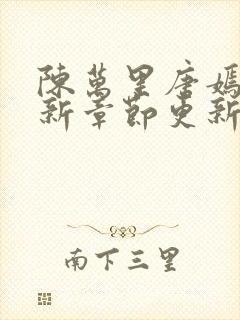 陳萬里唐嫣
新章節更新
南下三里